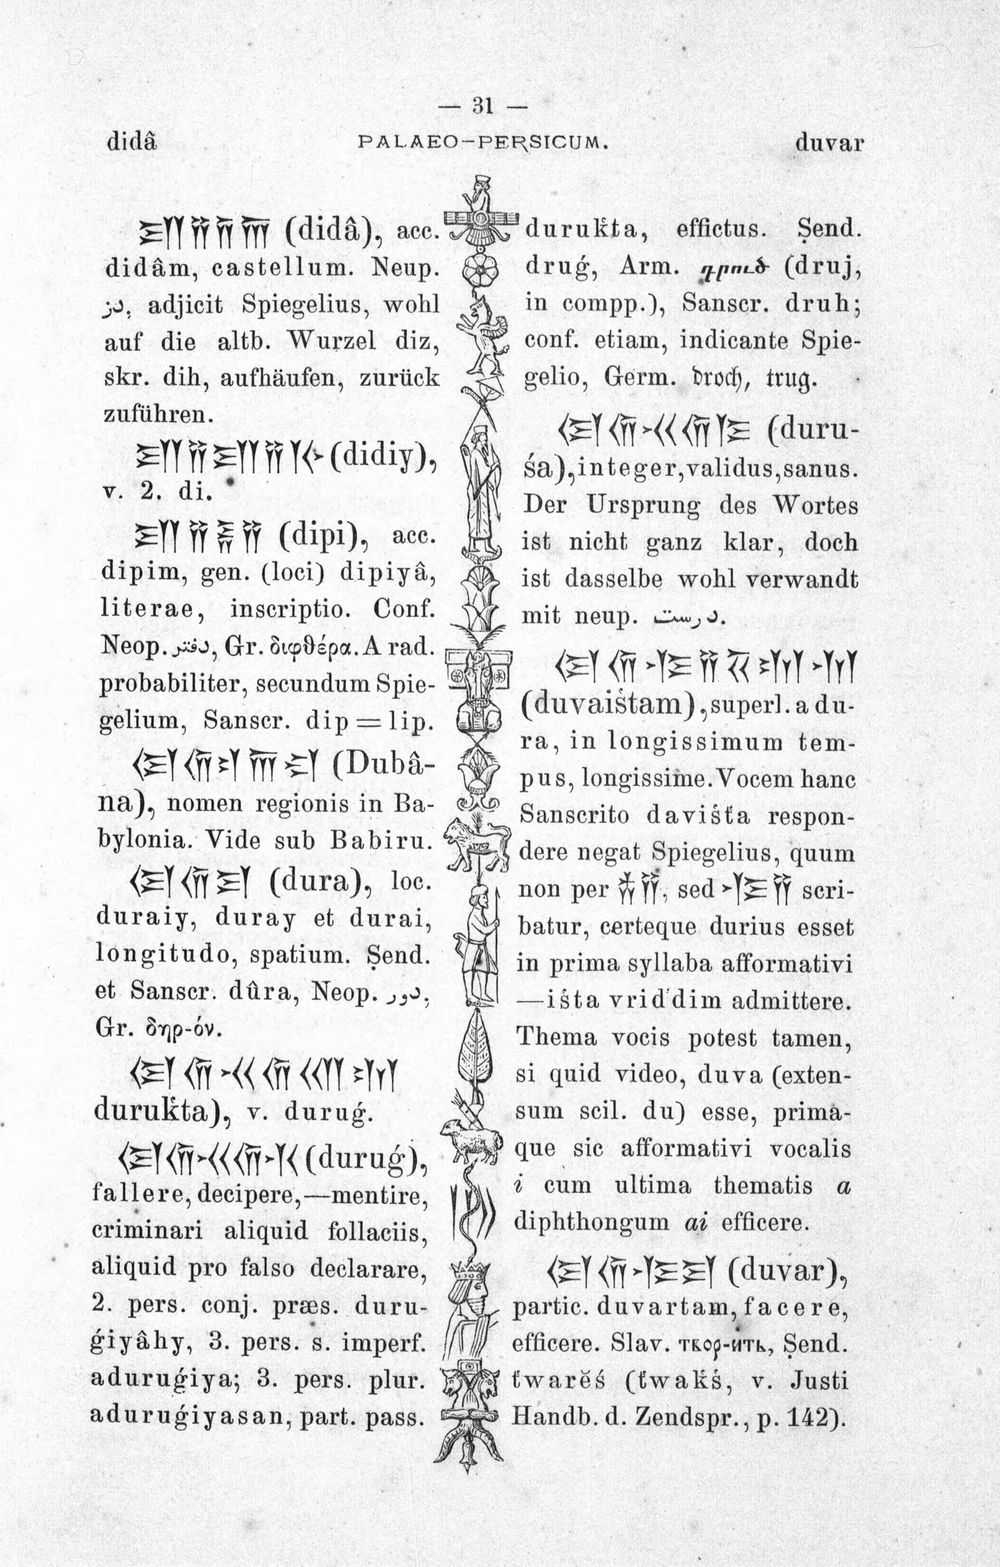 — 31 —
didâ PALAEO-PERSICUM. duvar
𐎮𐎡𐎭𐎠 (didâ), acc.
didâm, castellum. Neup.
دز, adjicit Spiegelius, wohl
auf die altb. Wurzel diz,
skr. dih, aufhäufen, zurück
zuführen.
𐎮𐎡𐎮𐎡𐎹 (didiy),
v. 2. di.
𐎮𐎡𐎱𐎡 (dipi), acc.
dipim, gen. (loci) dipiyâ,
literae, inscriptio. Conf.
Neop. دفتر, Gr. διφθέρα. A rad.
probabiliter, secundum Spie-
gelium, Sanscr. dip = lip.
𐎯𐎢𐎲𐎠𐎴 (Dubâ-
na), nomen regionis in Ba-
bylonia. Vide sub Babiru.
𐎯𐎢𐎼 (dura), loc.
duraiy, duray et durai,
longitudo, spatium. Ṣend.
et Sanscr. dûra, Neop. دور,
Gr. δηρ-όν.
𐎯𐎢𐎽𐎢𐎧𐎫
durukťa), v. duruǵ.
𐎯𐎢𐎽𐎢𐎩 (duruǵ),
fallere, decipere,—mentire,
criminari aliquid follaciis,
aliquid pro falso declarare,
2. pers. conj. præs. duru-
ǵiyâhy, 3. pers. s. imperf.
aduruǵiya; 3. pers. plur.
aduruǵiyasan, part. pass.
durukťa, effictus. Ṣend.
druǵ, Arm. դրուժ (druj,
in compp.), Sanscr. druh;
conf. etiam, indicante Spie-
gelio, Germ. broch, trug.
𐎯𐎢𐎽𐎢𐎿 (duru-
śa), integer, validus, sanus.
Der Ursprung des Wortes
ist nicht ganz klar, doch
ist dasselbe wohl verwandt
mit neup. درست.
𐎯𐎢𐎺𐎡𐏁𐎫𐎶
(duvaiśtam), superl. a du-
ra, in longissimum tem-
pus, longissime. Vocem hanc
Sanscrito daviśťa respon-
dere negat Spiegelius, quum
non per 𐎻𐎡, sed 𐎺𐎡 scri-
batur, certeque durius esset
in prima syllaba afformativi
—iśta vriddim admittere.
Thema vocis potest tamen,
si quid video, duva (exten-
sum scil. du) esse, prima-
que sic afformativi vocalis
i cum ultima thematis a
diphthongum ai efficere.
𐎯𐎢𐎺𐎼 (duvar),
partic. duvartam, facere,
efficere. Slav. твор-ить, Ṣend.
ťwarĕś (ťwakś, v. Justi
Handb. d. Zendspr., p. 142).